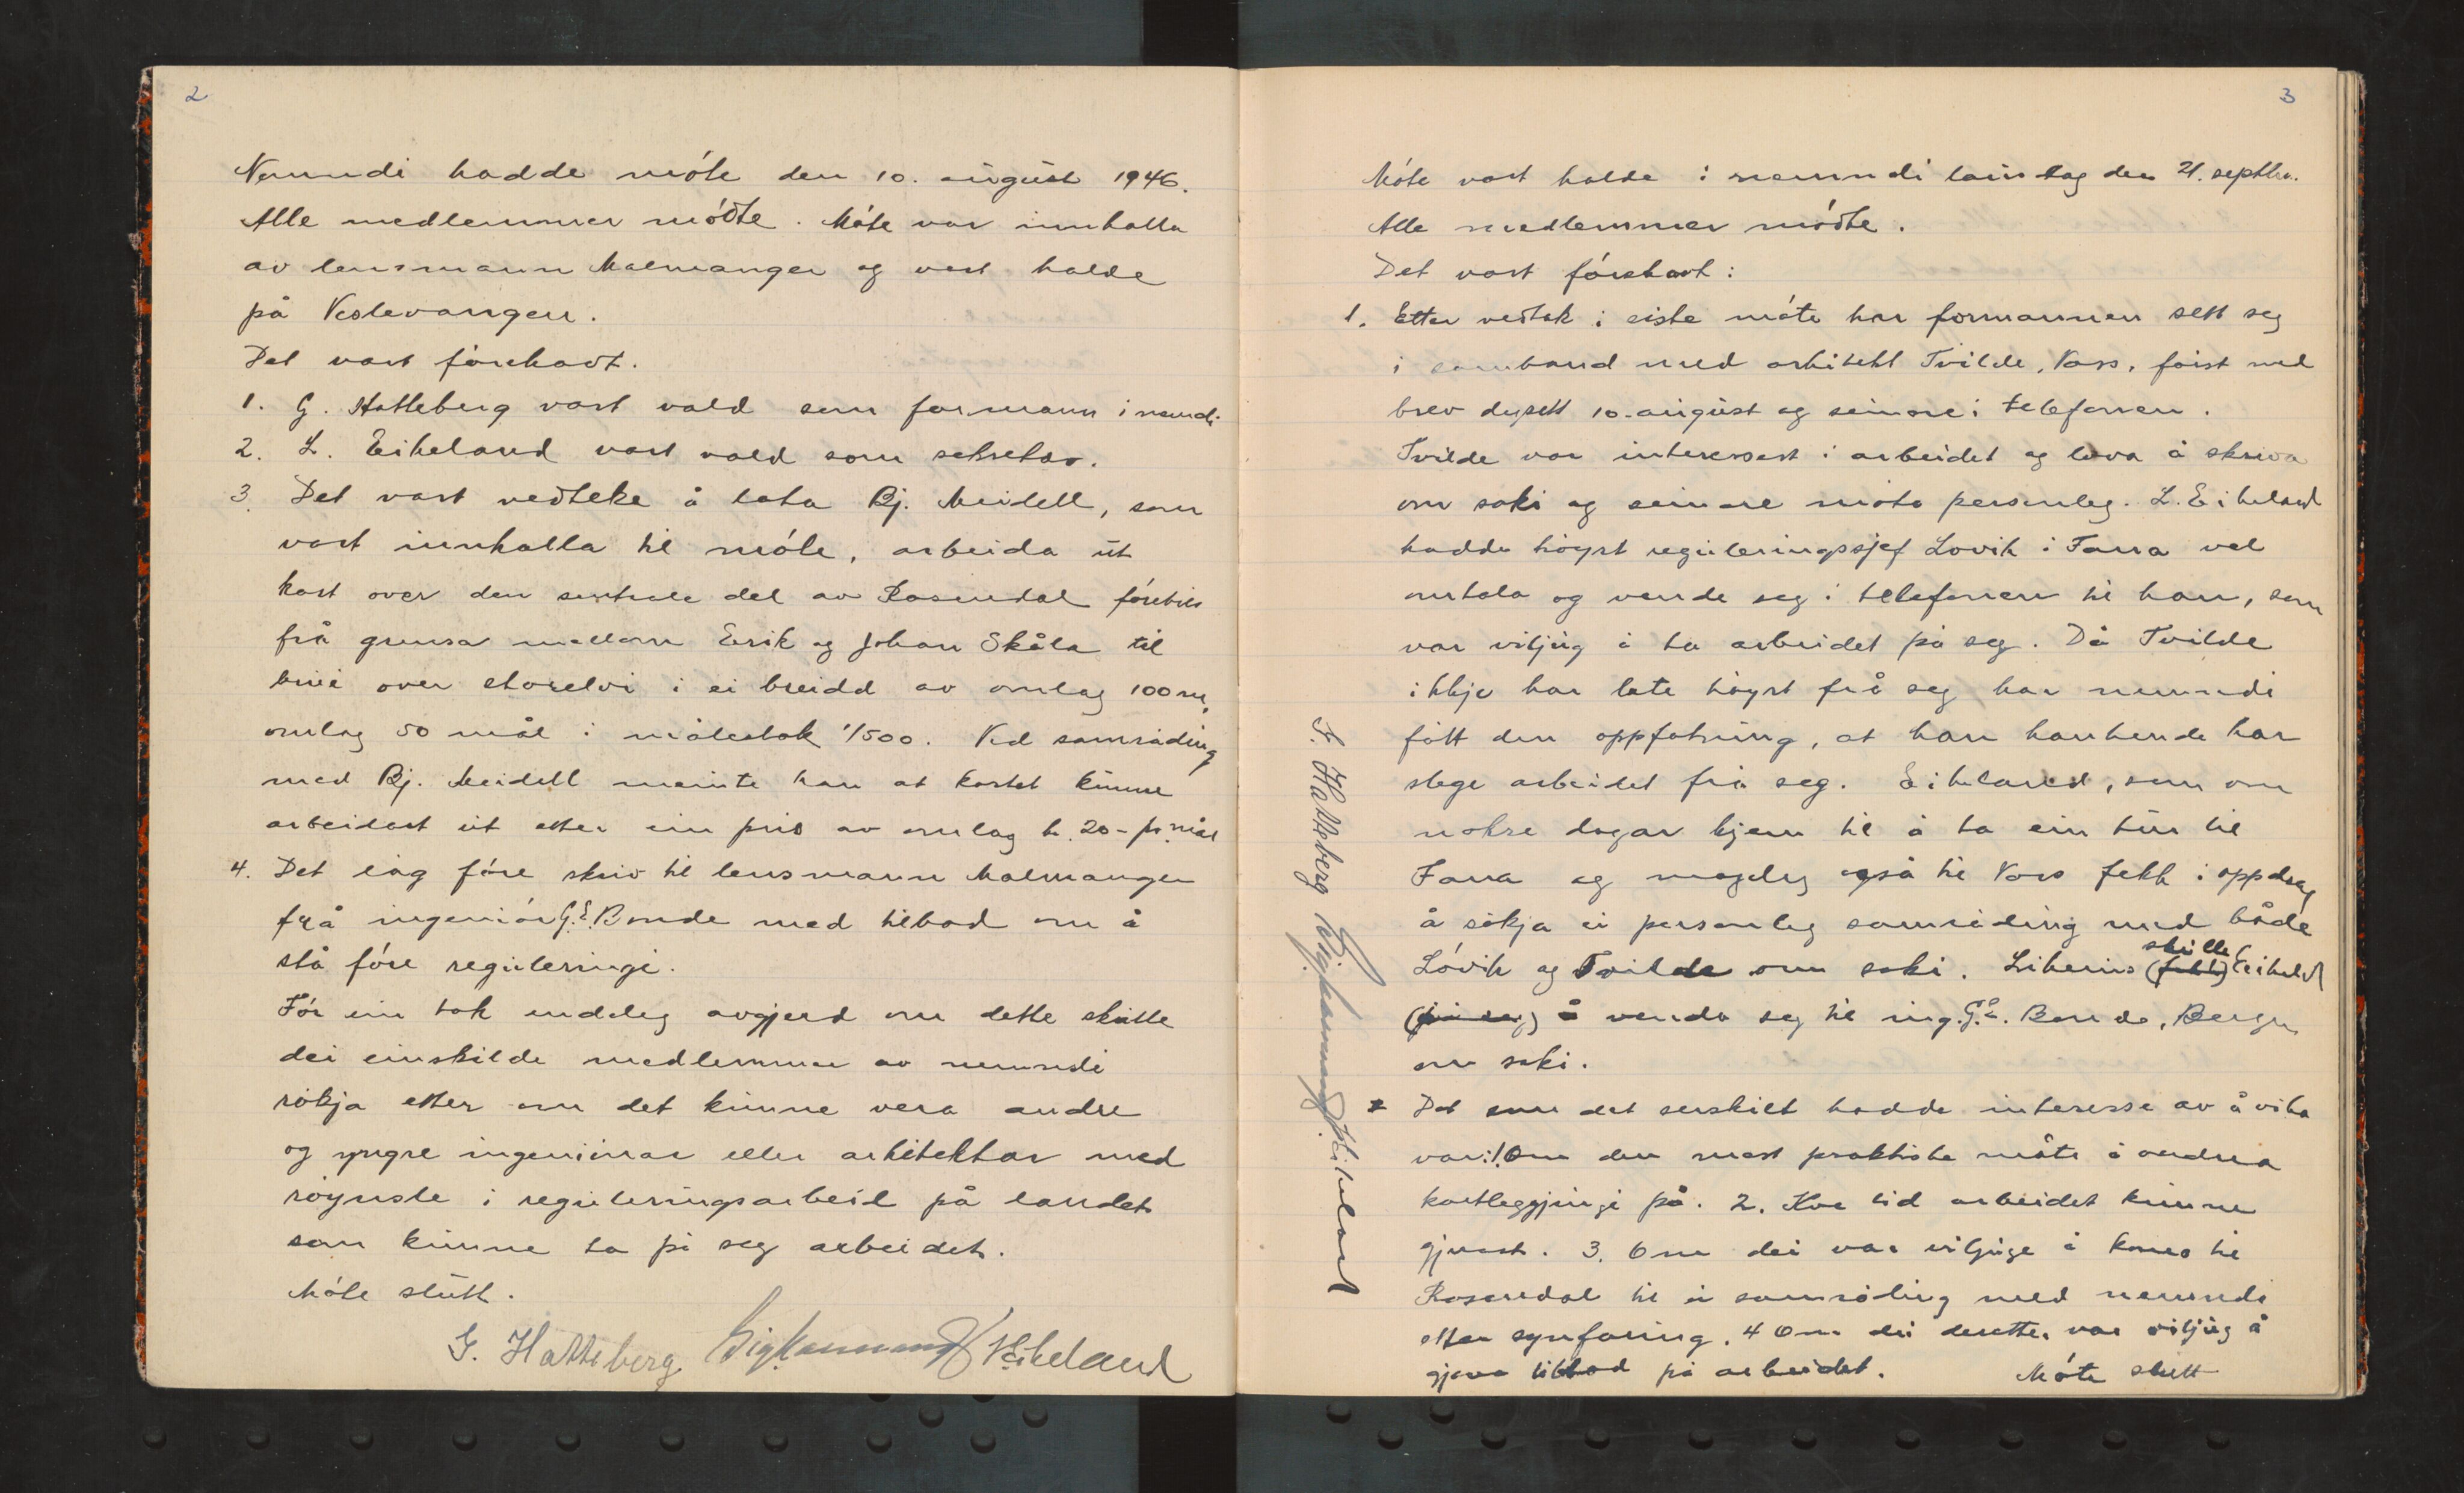 2
Nemndi hadde móte den 10. august 1946.
Alle medlemmer móðte. Móte var innkalla
av lensmann Malmanger og vart halde
på Veslevangen.
Det vart fórehavt.
1. G. Hatteberg vart vald som formann i nemndi
2. L. Eikeland vart vald som sekretær.
3. Det vart vedteke å lata Bj. Meidell, som
vart innkalla til móte, arbeida ut
kart over den sentrale del av Rosendal fórebils
frå grensa mellom Erik og Johan Skåla til
brui over storelvi i ei breidd av omlag 100 m,
omlag 50 mål i målestok 1/500. Ved samråding
med Bj. Meidell meinte han at kartet kunne
arbeidast ut etter ein pris av omlag kr. 20- pr. mål
4. Det låg fóre skriv til lensmann Malmanger
frå ingeniór G.E. Bonde med tilbod om å
stå fóre reguleringi.
Fór ein tok endeleg avgjerd om dette skulle
dei einskilde medlemmer av nemndi
rókja etter om det kunne vera andre
og yngre ingeniórar eller arkitektar med
róynsle i reguleringsarbeid på landet
som kunne ta på seg arbeidet.
Móte slutt.
G. Hatteberg Sig. L Eikeland
3
Móte vart halde i nemndi laurdag den 21. septbr.
Alle medlemmer móðte.
Det vart fórehavt:
1. Etter vedtak i siste móte har formannen sett seg
i samband med arkitekt Tvilde, Voss, fórst med
brev dagsett 10. august og seinare i telefonen.
Tvilde var interessert i arbeidet og lova å skriva
om saki og seinare móta personleg. L. Eikeland
hadde hóyrt reguleringssjef Lóvik i Fana vel
omtala og vende seg i telefonen til han, som
var viljug å ta arbeidet på seg. Då Tvilde
ikkje har late hóyrt frå seg har nemndi
fått den oppfatning, at han kanhende har
slege arbeidet frå seg. Eikeland, som om
nokre dagar kjem til å ta ein tur til
Fana og mogeleg også til Voss fekk i oppdrag
å sókja ei personleg samråding med både
Lóvik og Tvilde om saki. Likeins (fekk) skulle Eikeland
å venda seg til ing. G.E. Bonde, Bergen
om saki.
Det som det serskilt hadde interesse av å vita
var: 1. Om den mest praktiske måte å ordna
kartleggjingi på. 2. Kva tid arbeidet kunne
gjerast. 3. Om dei var viljuge å koma til
Rosendal til ei samråding med nemndi
etter synfaring. 4 Om dei deretter var viljug å
gjeva tilbod på arbeidet. Móte slutt
G. Hatteberg Sig. L. Eikeland